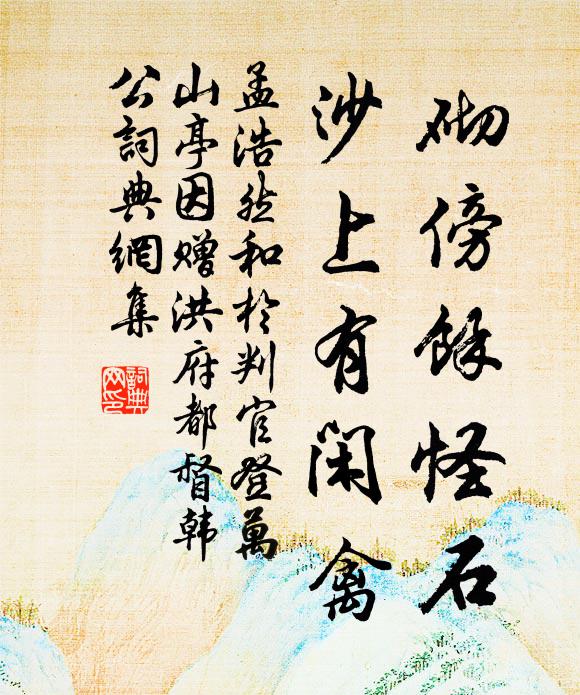 砌傍餘怪石
沙上有閑禽
孟浩然和於判官登萬
山亭因贈洪府都督韩
公詞典網集
詞典
网印